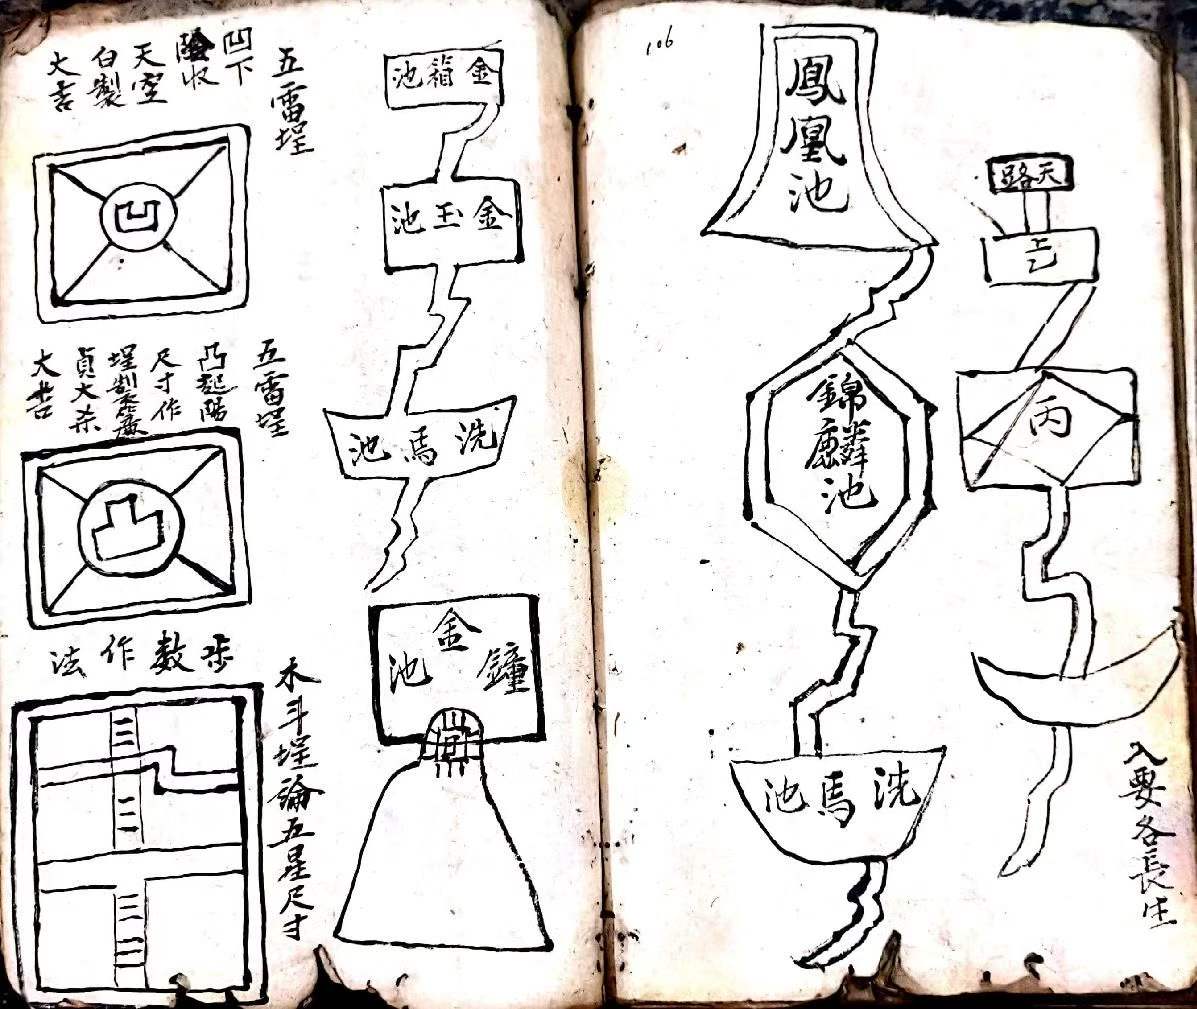 106
天路
丙
入要各長生
鳳凰池
錦麟池
洗馬池
金箱池
金玉池
洗馬池
金鐘池
五雷埕
凹下
陰收
天空
白製
大吉
凹
五雷埕
凸起陽
尺寸作
埕製
貞大杀
大吉
凸
步數作法
木斗埕論五星尺寸
三
二
三
三